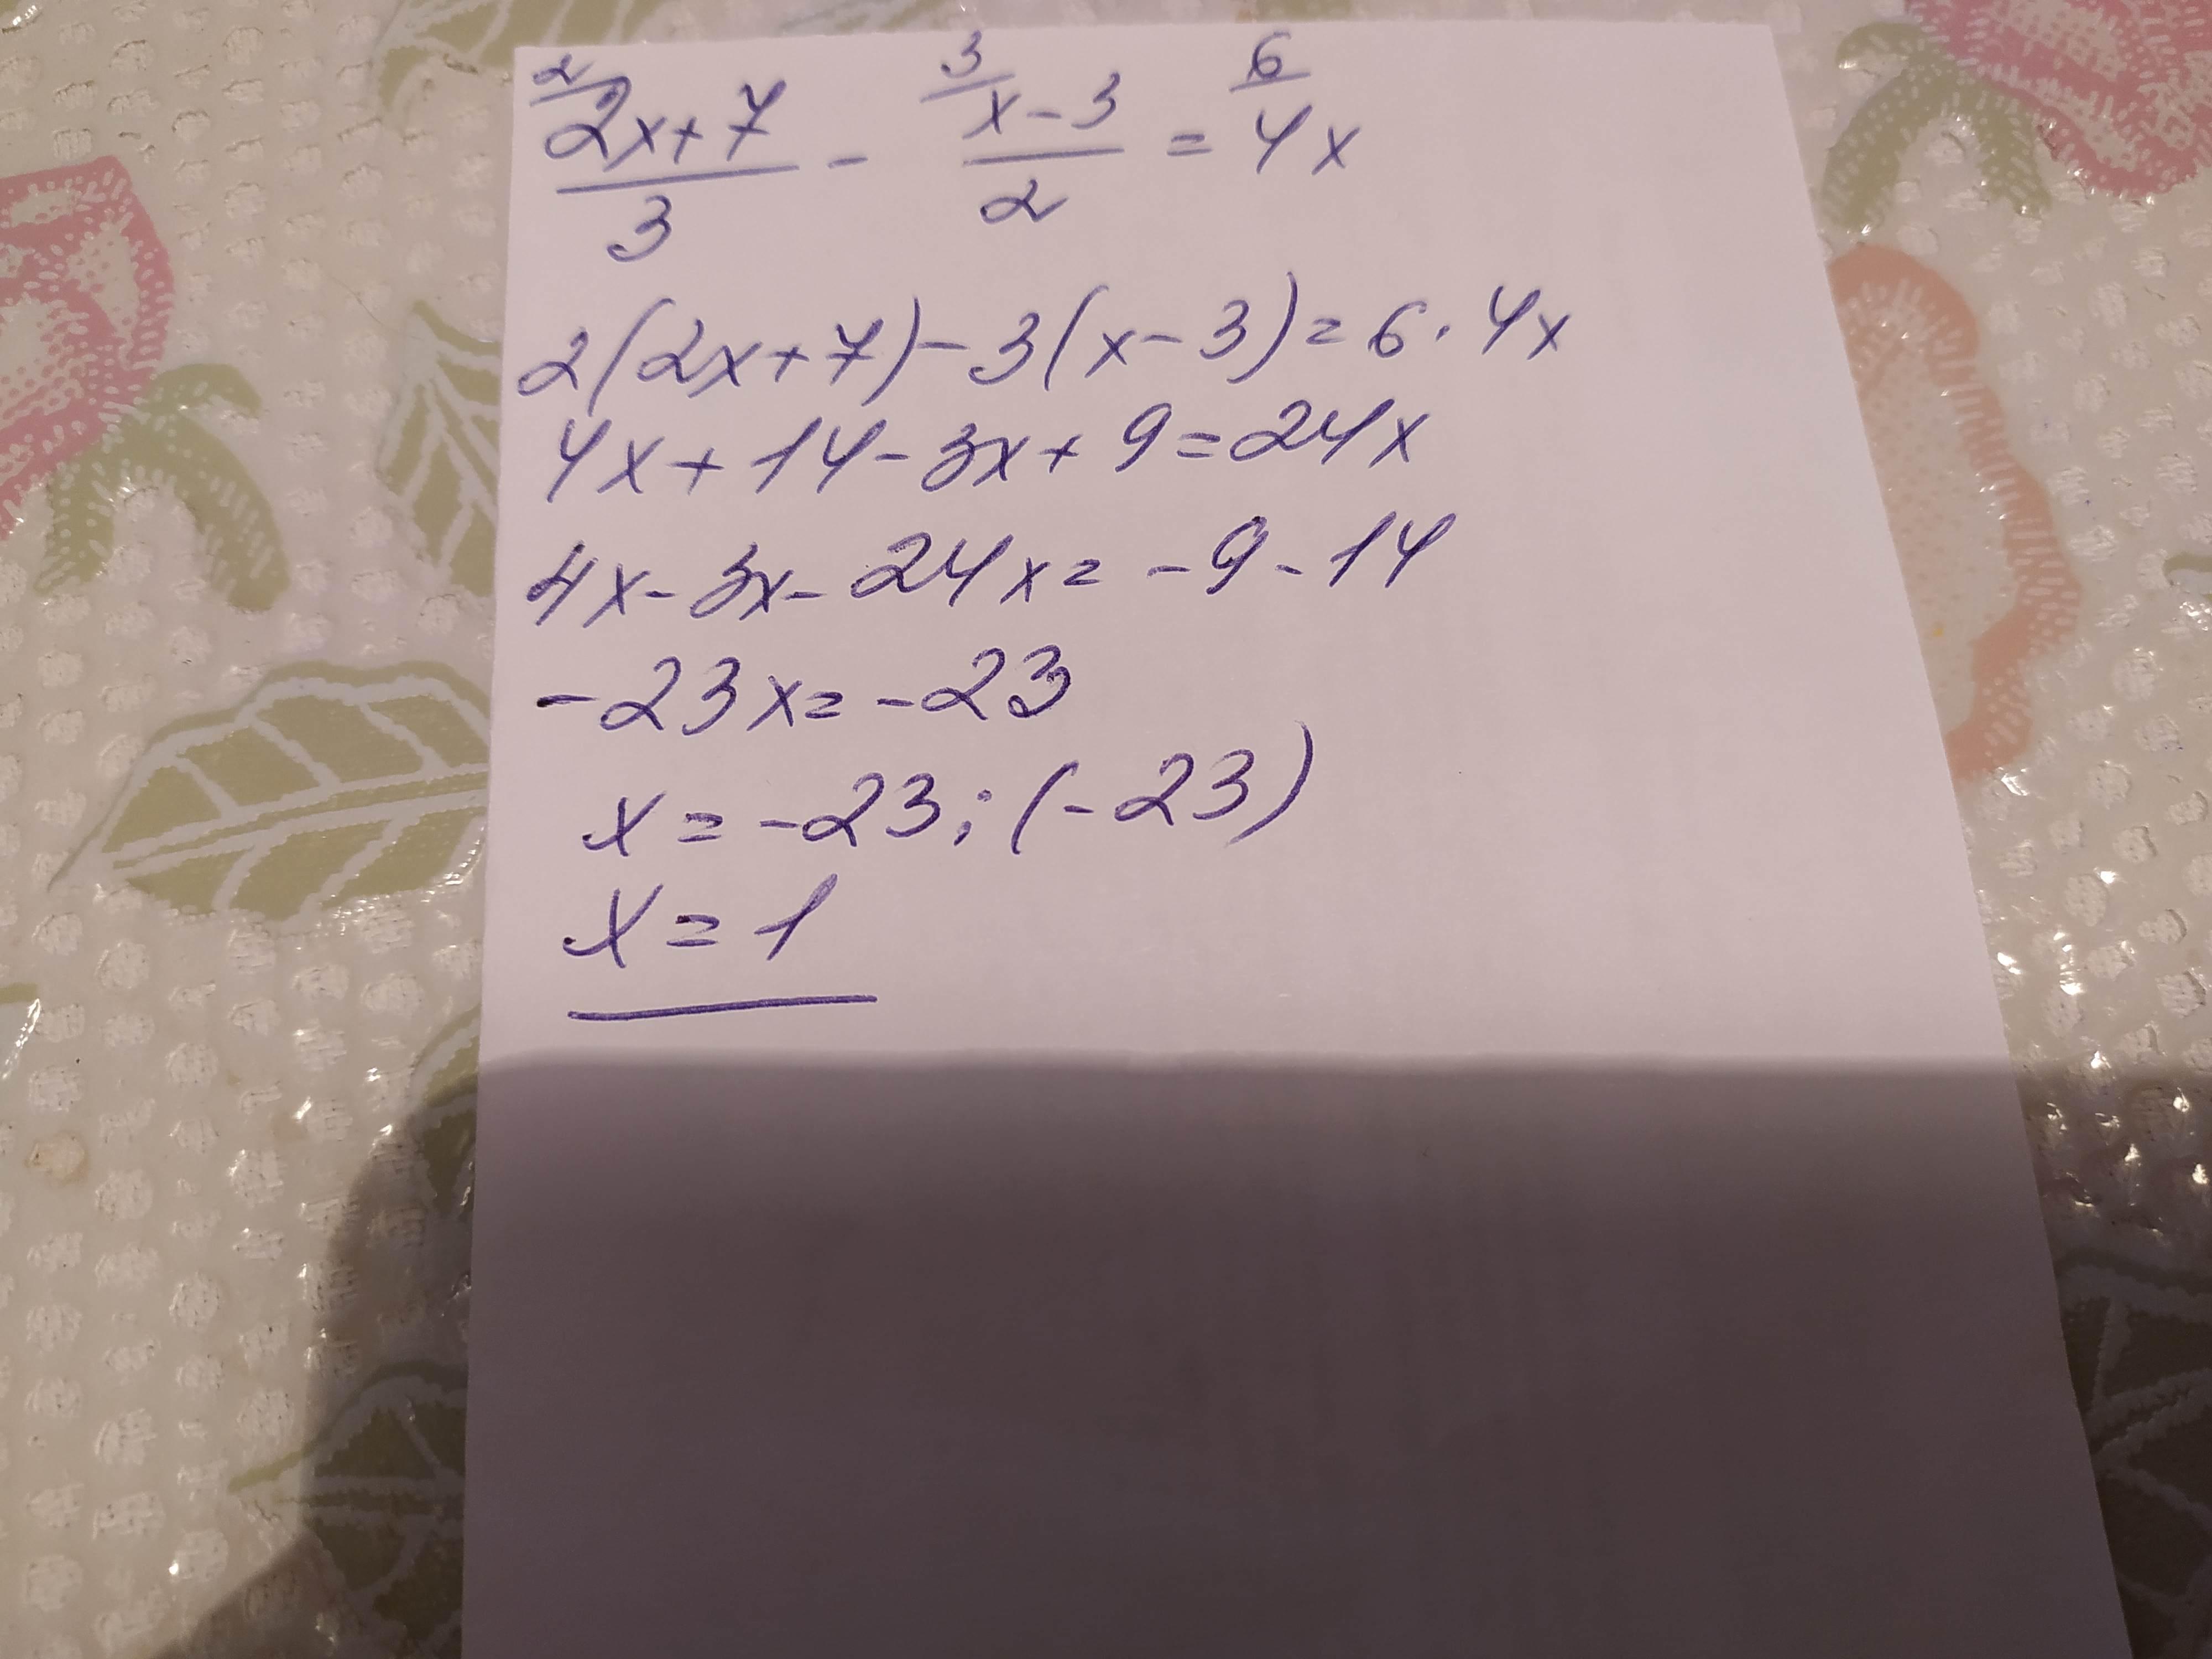 2/ (2x+7)/3 - 3/ (x-3)/2 = 6/ 4x
2(2x+7)-3(x-3)=6·4x
4x+14-3x+9=24x
4x-3x-24x=-9-14
-23x=-23
x=-23:(-23)
x=1